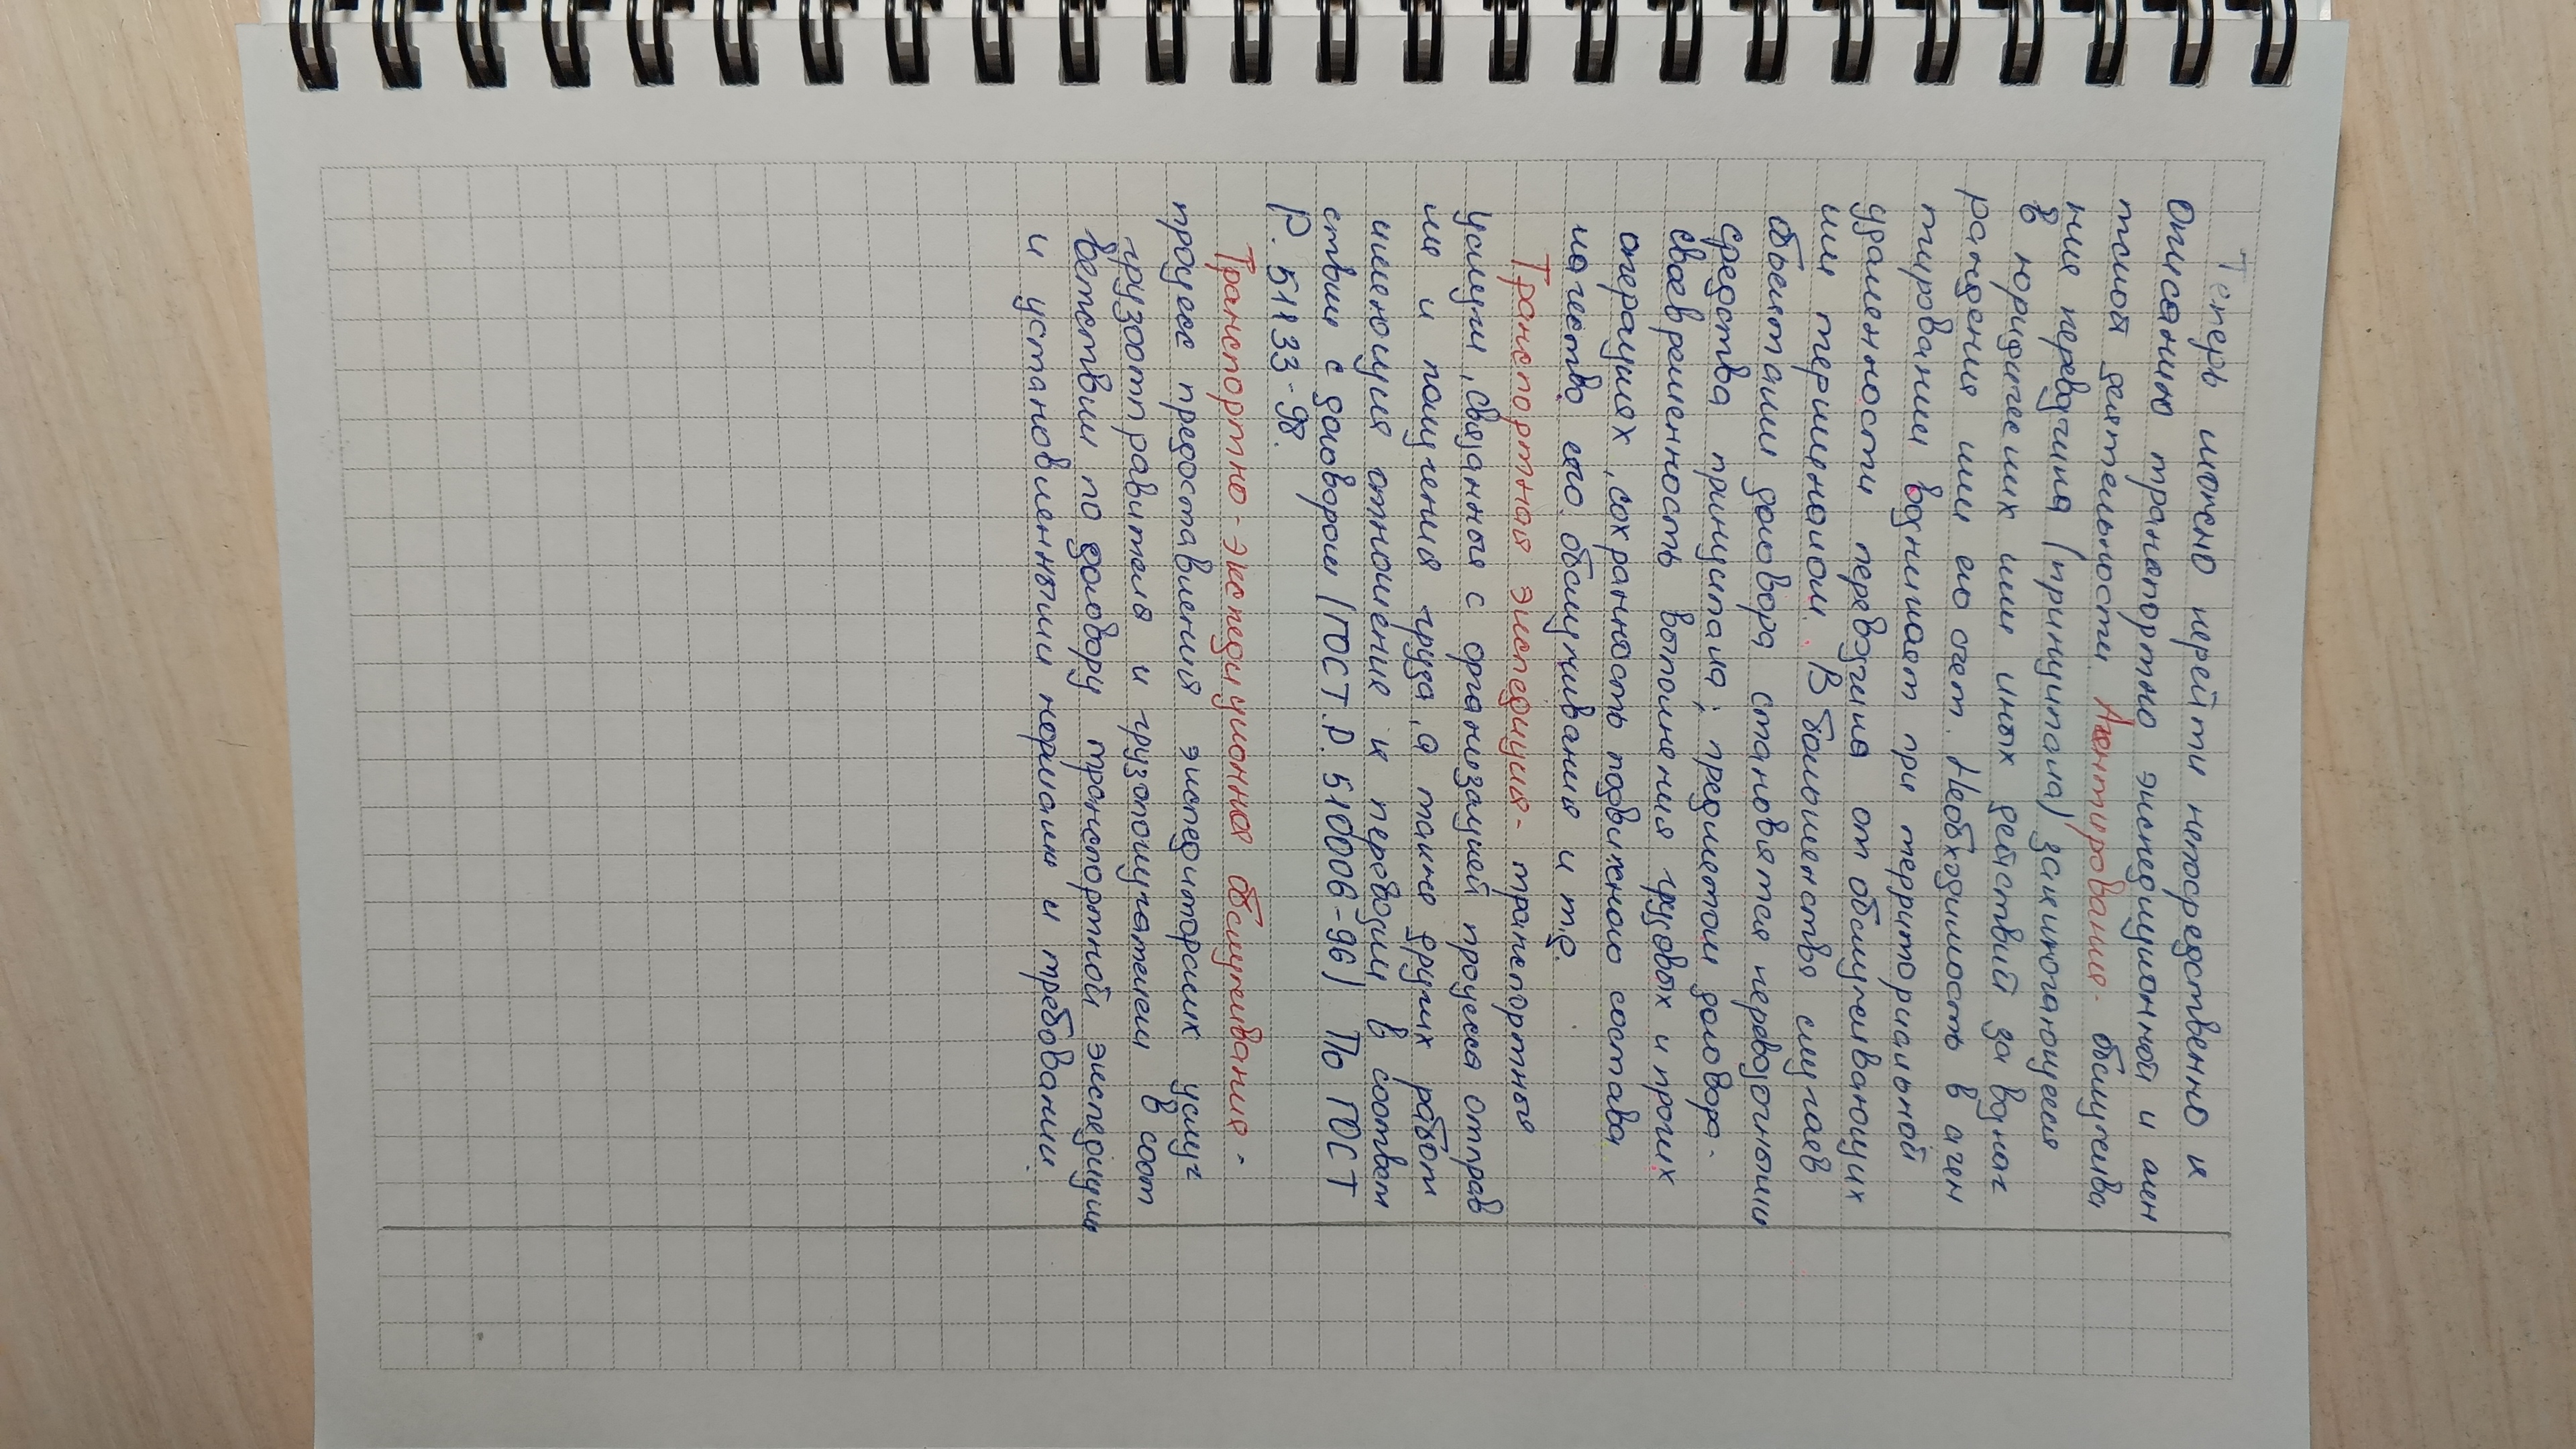 Теперь можно перейти непосредственно к
описанию транспортно экспедиционной и аген
тской деятельности Агентирование- обслужива
ние перевозчика (принципала) заключающееся
в юридических или иных действий за возног
рождения или его счет. Необходимость в аген
тировании возникает при территориальной
удаленности перевозчика от обслуживающих
им терминалом. В большенстве случаев
объектами договора становятся перевозочными
средства принципала; предметом договора-
своевременность выполнения грузовых и прочих
операциях, сохранность подвижного состава
качество его обслуживания и т.д.
Транспортная экспедиция- транспортные
услуги, связанные с организацией процесса отправ
ия и получения груза, а также других работ
имеющиеся отношение к перевозки в соответ
ствии с договором (ГОСТ.Р. 510006-96) По ГОСТ
Р. 51133-98.
Транспортно-экспедиционная обслуживания-
процесс предоставления экспедиторских услуг
грузоотправителя и грузополучателем в соот
ветствии по договору транспортной экспедиции
и установленными нормами и требовании.